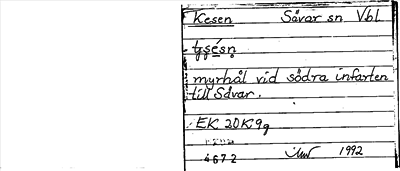 Kesen Sävar sn Vbl
myrhål vid södra infarten
till Sävar.
EK 20K9g
4672 1992